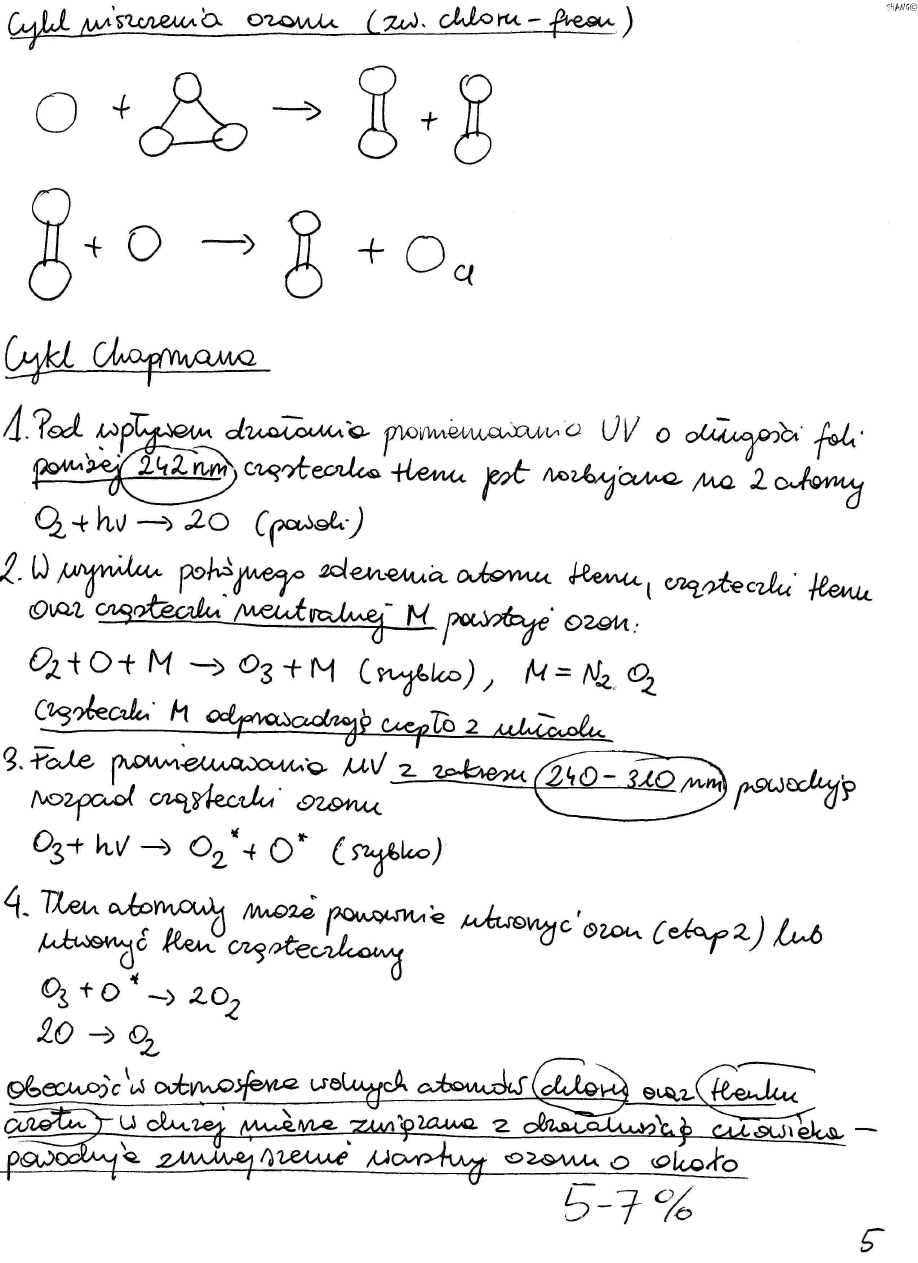 SHANG©
Cykl niszczenia ozonu (zw. chloru - freon)
+ → +
+ → + Cl
Cykl Chapmana
1. Pod wpływem działania promieniowania UV o długości fali
poniżej 242 nm, cząsteczka tlenu jest rozbijana na 2 atomy
O₂ + hν → 2O (powoli)
2. W wyniku potrójnego zderzenia atomu tlenu, cząsteczki tlenu
oraz cząsteczki neutralnej M powstaje ozon:
O₂ + O + M → O₃ + M (szybko), M = N₂, O₂
Cząsteczki M odprowadzają ciepło z układu
3. Fale promieniowania UV z zakresu 240 - 310 nm powodują
rozpad cząsteczki ozonu
O₃ + hν → O₂* + O* (szybko)
4. Tlen atomowy może ponownie utworzyć ozon (etap 2) lub
utworzyć tlen cząsteczkowy
O₃ + O* → 2O₂
2O → O₂
obecność w atmosferze wolnych atomów chloru oraz tlenku
azotu - w dużej mierze związana z działalnością człowieka -
powoduje zmniejszenie warstwy ozonu o około
5-7%
5